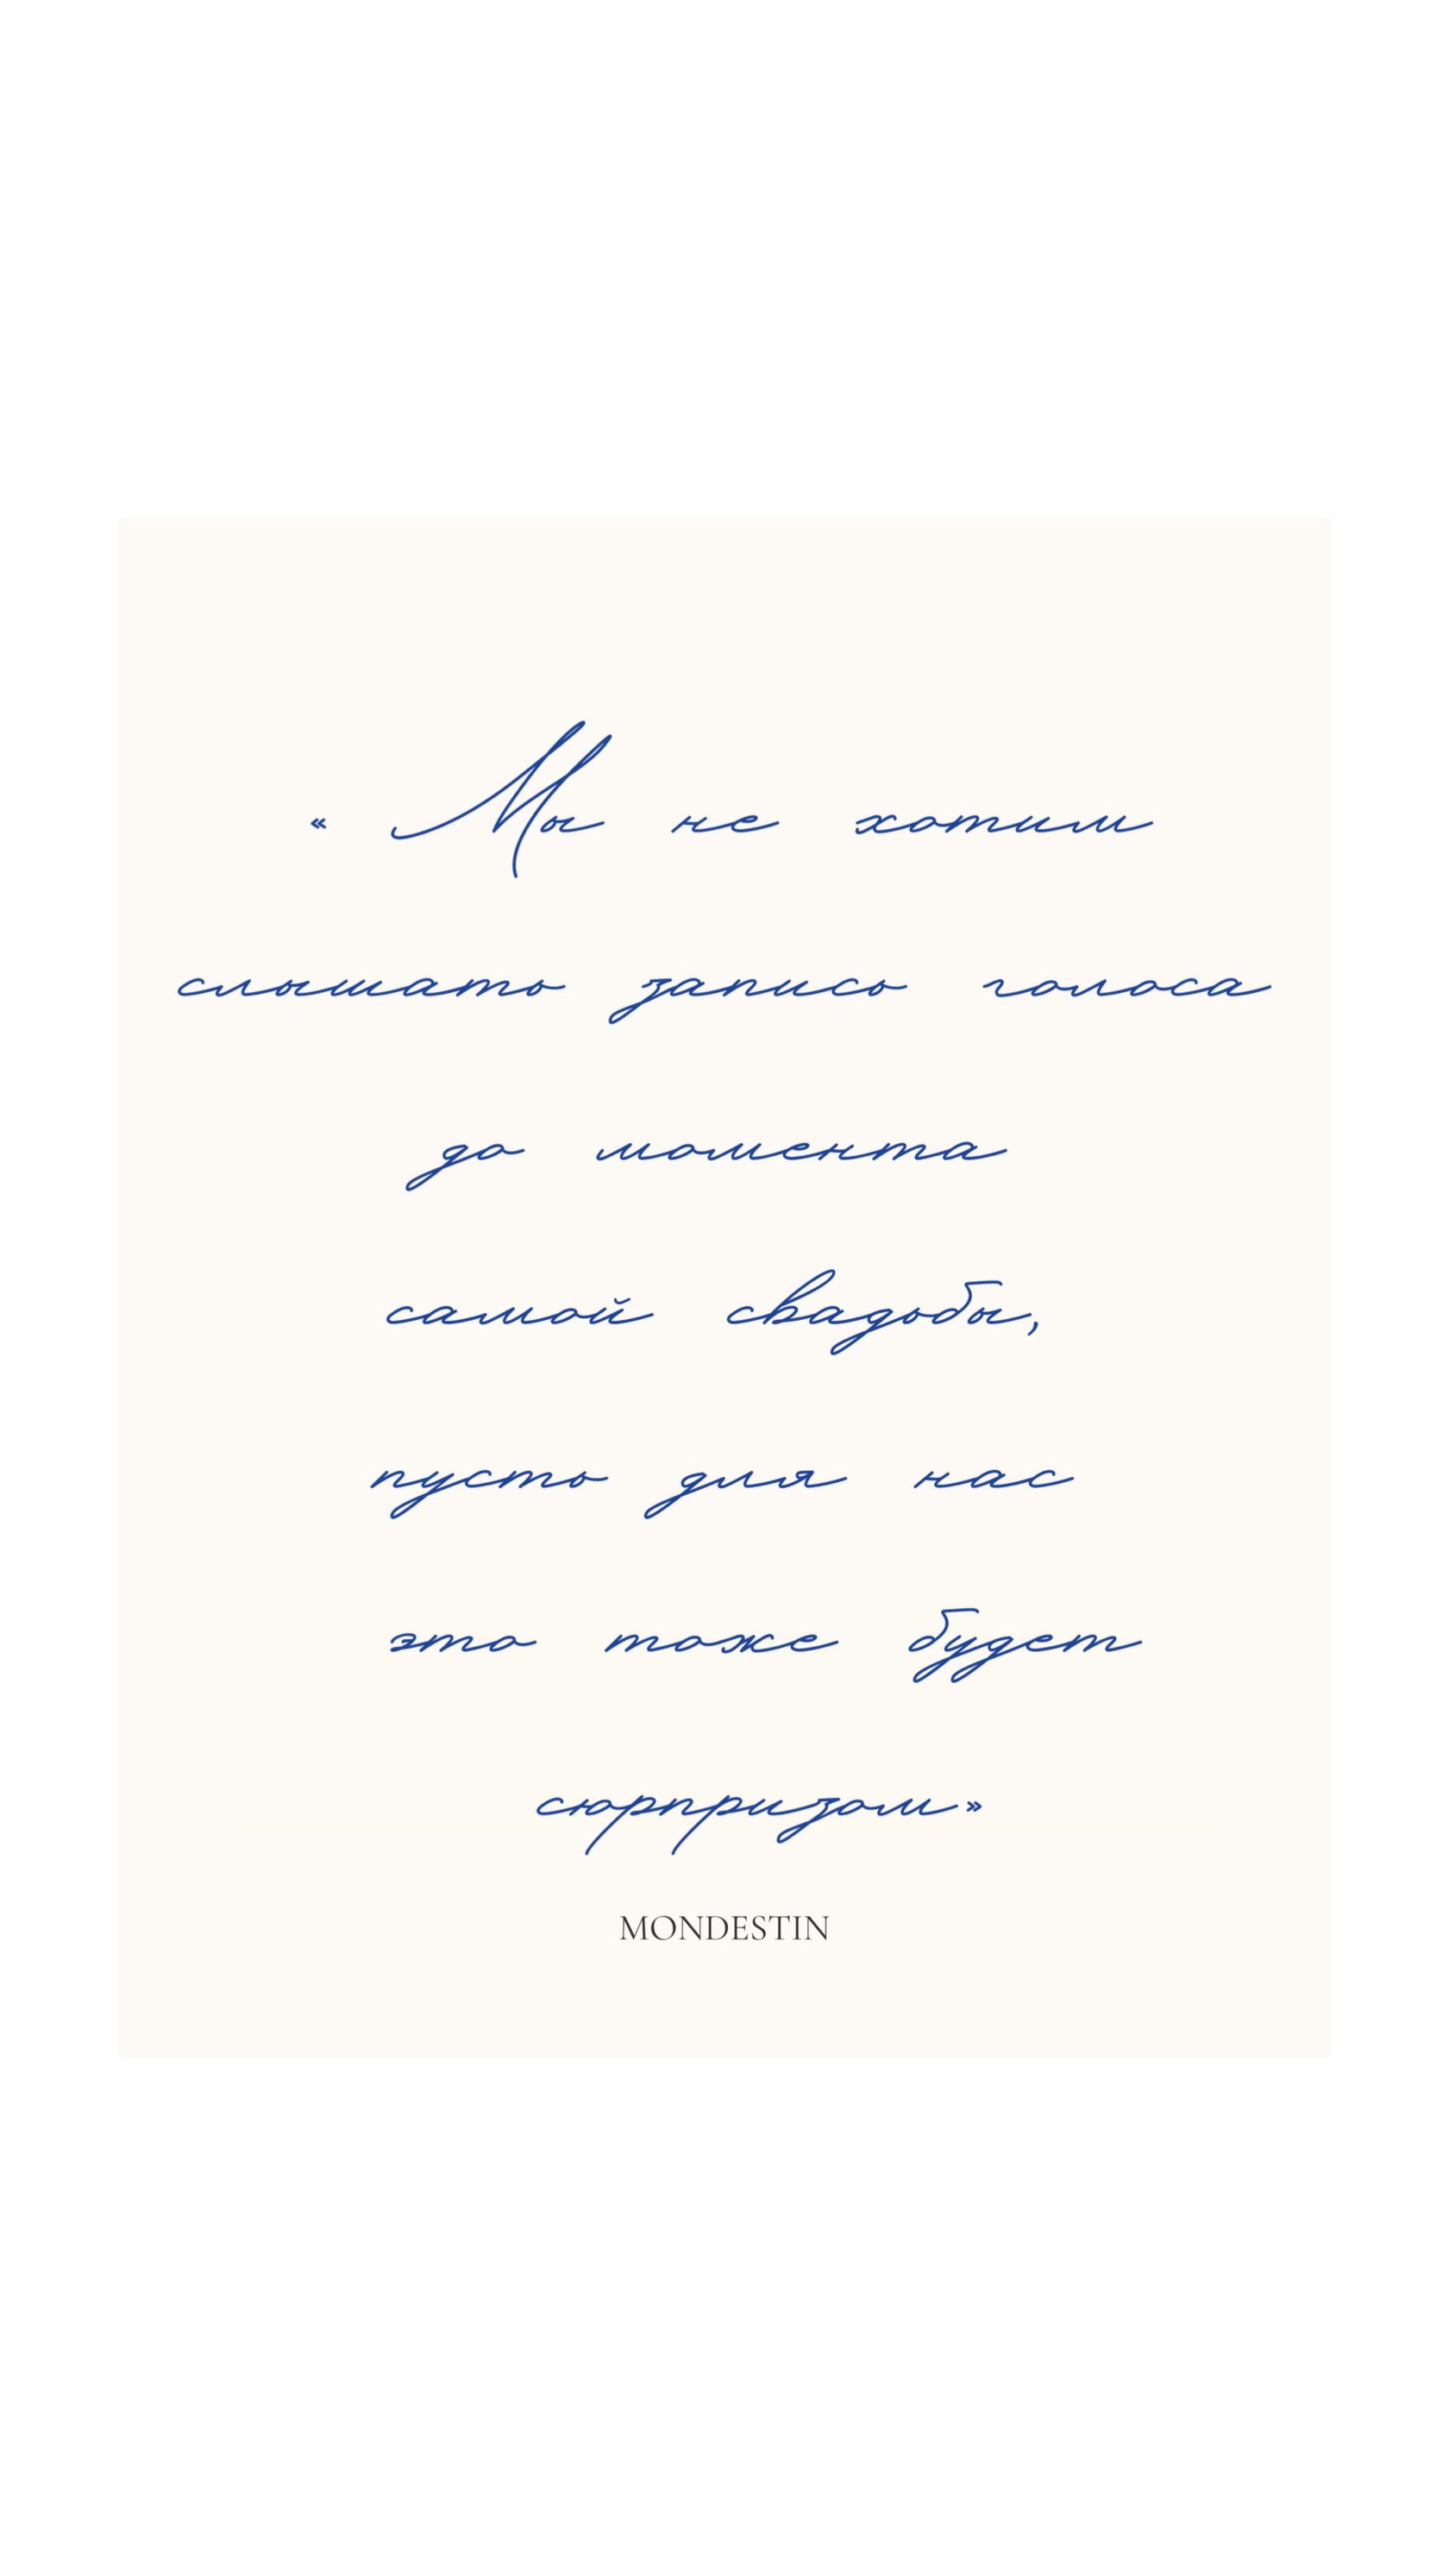 « Мы не хотим
слышать запись голоса
до момента
самой свадьбы,
пусть для нас
это тоже будет
сюрпризом»
MONDESTIN